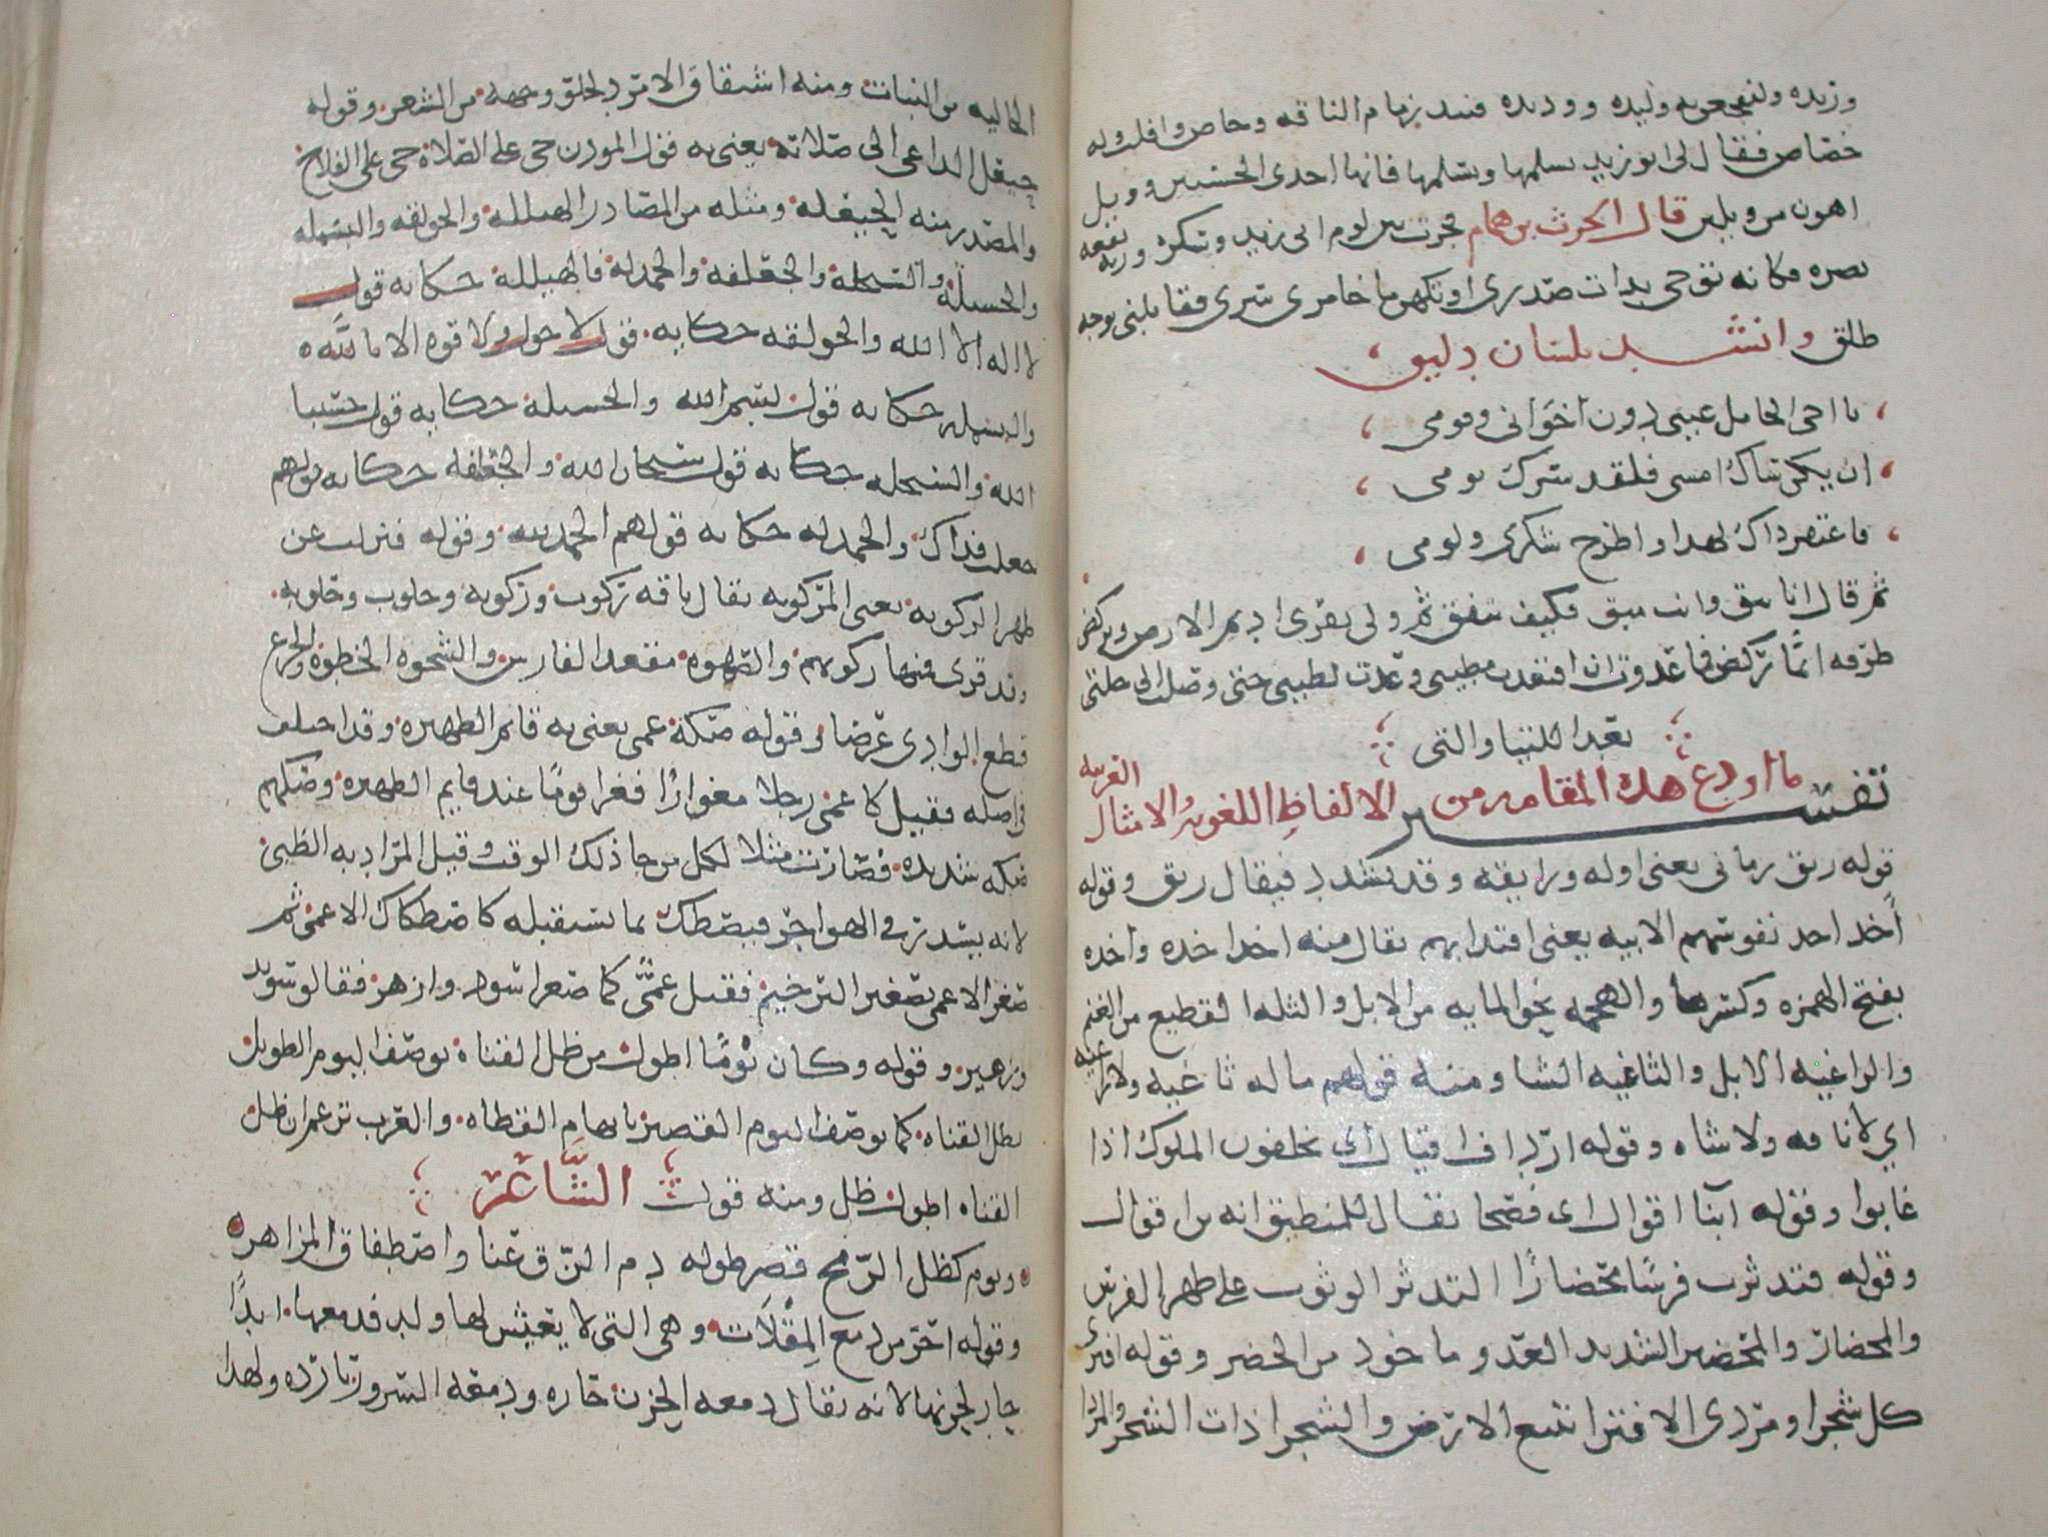 وزبده ولنفجعن به وليده ووديده فنبد زمام الناقه وحاص وافلت وله
خصاص فقال لى ابو زيد تسلمها وتسنمها فانها احدى الحسنيين وويل
اهون من ويلين قال الحرث بن همام فحرت بين لوم ابى زيد وشكره وزنه نفعه
بضره فكانه نوحى بذات صدرى او تكهن ما خامر سرى فقابلنى بوجه
طلق وانشد بلسان ذليق
يا اخى الحامل ضيمى دون اخوانى وقومى
ان يكن ساك امسى فلقد سرك يومى
فاغتفر ذاك لهذا واطرح شكرى ولومى
ثم قال انا تيق وانت ميق فكيف نتفق ثم ولى يفرى اديم الارض ويركض
طرفه ايما تركض فما عدوت ان اقتعدت مطيتى وعدت لطيتى حتى وصلت الى حلتى
بعد اللتيا والتى
تفسير ما اودع هذه المقامه من الالفاظ اللغويه والامثال العربيه
قوله ريق زمانى يعنى اوله ورايقه وقد يشدد فيقال ريق وقوله
اخذ اخذ نفوسهم الابيه يعنى اقتدا بهم يقال منه اخذ اخذه واخذه
بفتح الهمزه وكسرها والهجمه نحو المايه من الابل والثله القطيع من الغنم
والراغيه الابل والثاغيه الشا ومنه قولهم ما له ثاغيه ولا راغيه
اي لا ناقه ولا شاه وقوله ارداف اقيال اي يخلفون الملوك اذا
غابوا وقوله ابنا اقوال اى فصحا يقال للمنطيق انه من اقوال
وقوله فتدثرت فرسا محضارا التدثر الوثوب على ظهر الفرس
والمحضار والمحضير الشديد العدو ماخوذ من الحضر وقوله اقترى
كل شجرا ومردى الاقترا تتبع الارض والشجرا ذات الشجر والمردا
الخاليه من النبات ومنه اشتقاق الامرد لخلو وجهه من الشعر وقوله
حيعل الداعى الى صلاته يعنى به قول الموذن حى على الصلاة حى على الفلاح
والمصدر منه الحيعله ومثله من المصادر الهيلله والحولقه والبسمله
والحسبله والسبحله والجعلفه والحمدله فالهيلله حكايه قول
لا اله الا الله والحولقه حكايه قول لا حول ولا قوه الا بالله
والبسمله حكايه قول بسم الله والحسبله حكايه قول حسبنا
الله والسبحله حكايه قول سبحان الله والجعلفه حكايه قولهم
جعلت فداك والحمدله حكايه قولهم الحمد لله وقوله فنزلت عن
ظهر الركوبه يعنى المركوبه يقال ناقه ركوب وركوبه وحلوب وحلوبه
وقد قرى فمنها ركوبهم والصهوه مقعد الفارس والشحوه الخطوه والجزع
قطع الوادى عرضا وقوله صكة عمى يعنى به قايم الظهيره وقد اختلف
فى اصله فقيل كان عمى رجلا مغوارا فغزا قوما عند قايم الظهيره وصكهم
صكه شديده فصارت مثلا لكل من جا ذلك الوقت وقيل المراد به الظبى
لانه يسدر فى الهواجر فيصطك بما يستقبله كاصطكاك الاعمى ثم
صغر الاعمى تصغير الترخيم فقيل عمى كما صغر اسود وازهر فقالو سويد
وزهير وقوله وكان يوما اطول من ظل القناة يوصف اليوم الطويل
بظل القناه كما يوصف اليوم القصير بابهام القطاه والعرب تزعم ان ظل
القناه اطول ظل ومنه قول الشاعر
ويوم كظل الرمح قصر طوله دم الزق عنا واصطفاق المزاهر
وقوله احر من دمع المقلات وهى التى لا يعيش لها ولد فدمعها ابدا
حار لحزنها لانه يقال دمعه الحزن حاره ودمعه السرور بارده ولهذا